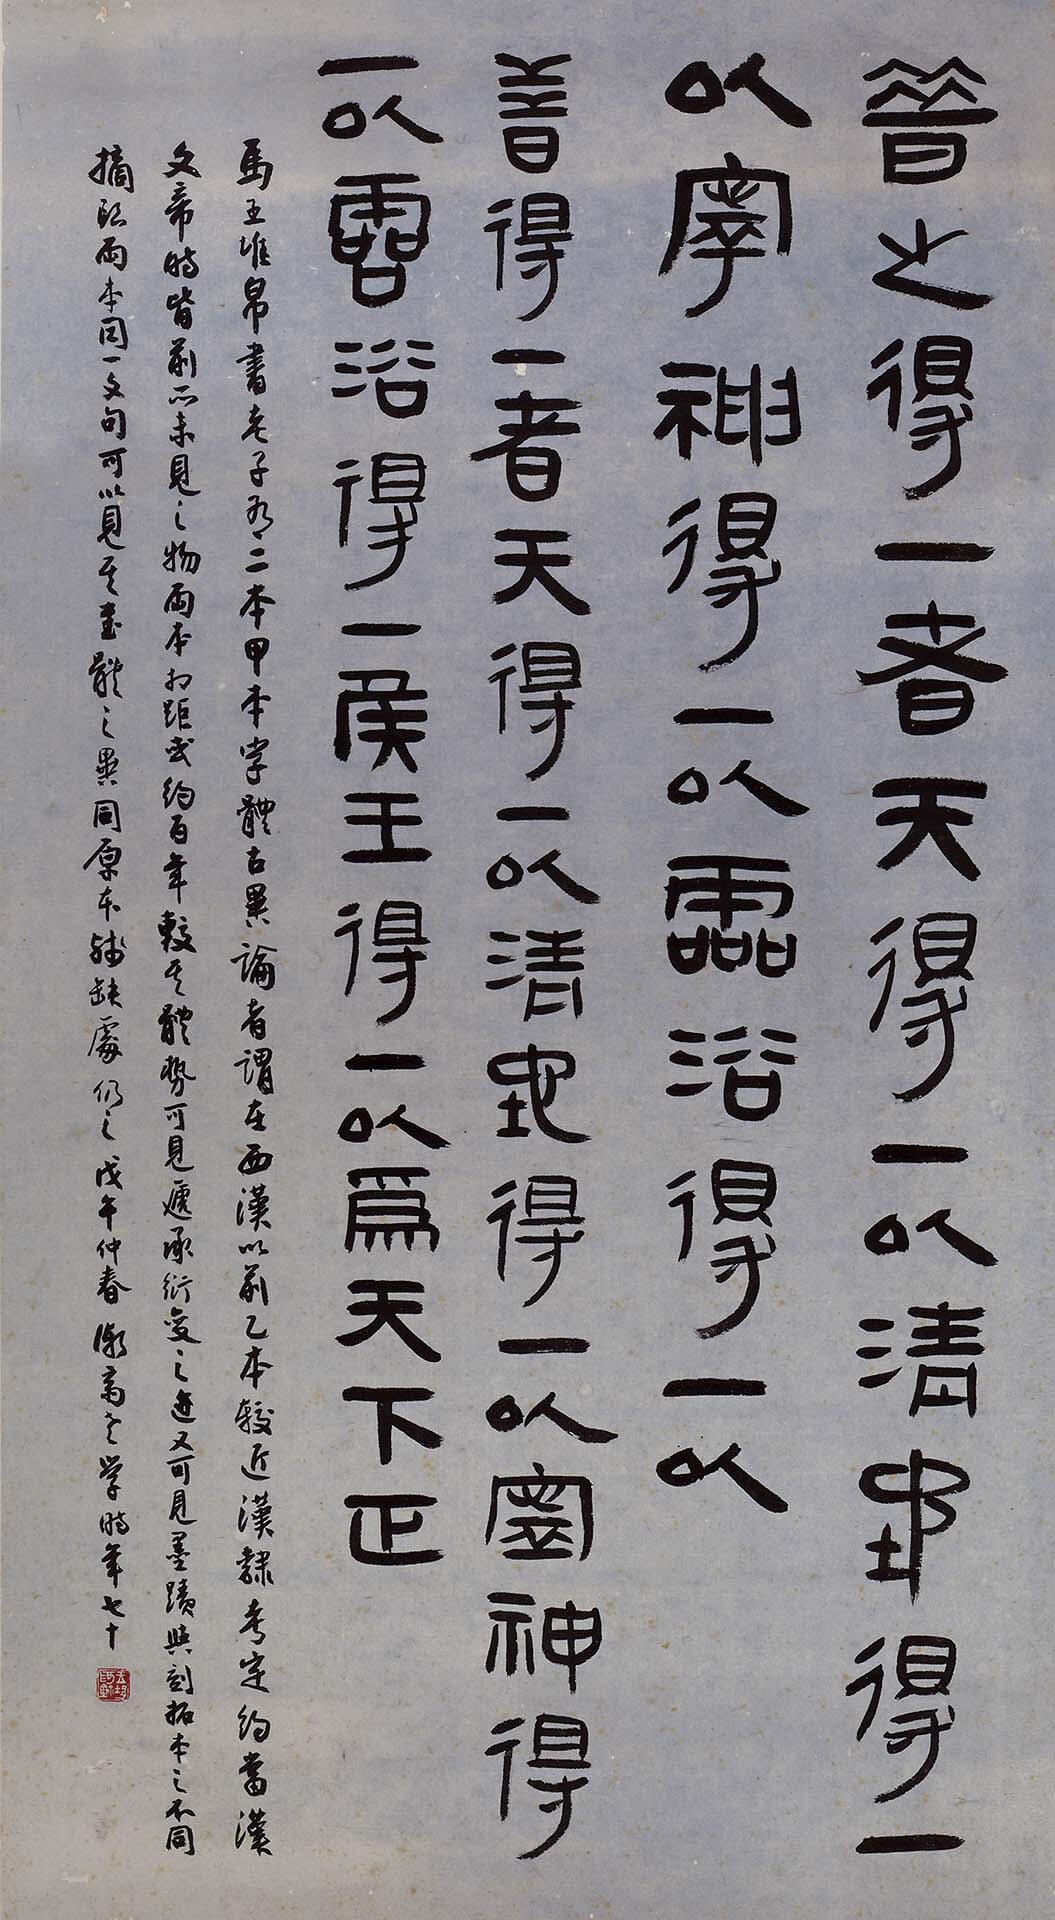 昔之得一者天得一以清地得一
以寧神得一以霝浴得一以
昔得一者天得一以清地得一以寧神得
一以霝浴得一侯王得一以爲天下正
馬王堆帛書老子有二本甲本字體古異論者謂在西漢以前乙本較近漢隸考定約當漢
文帝時皆前所未見之物兩本相距或約百年較其體勢可見遞承衍變之迹又可見墨蹟與刻拓本之不同
摘臨兩本同一文句可以見其書體之異同原本殘缺處仍之戊午仲春 老學時年七十